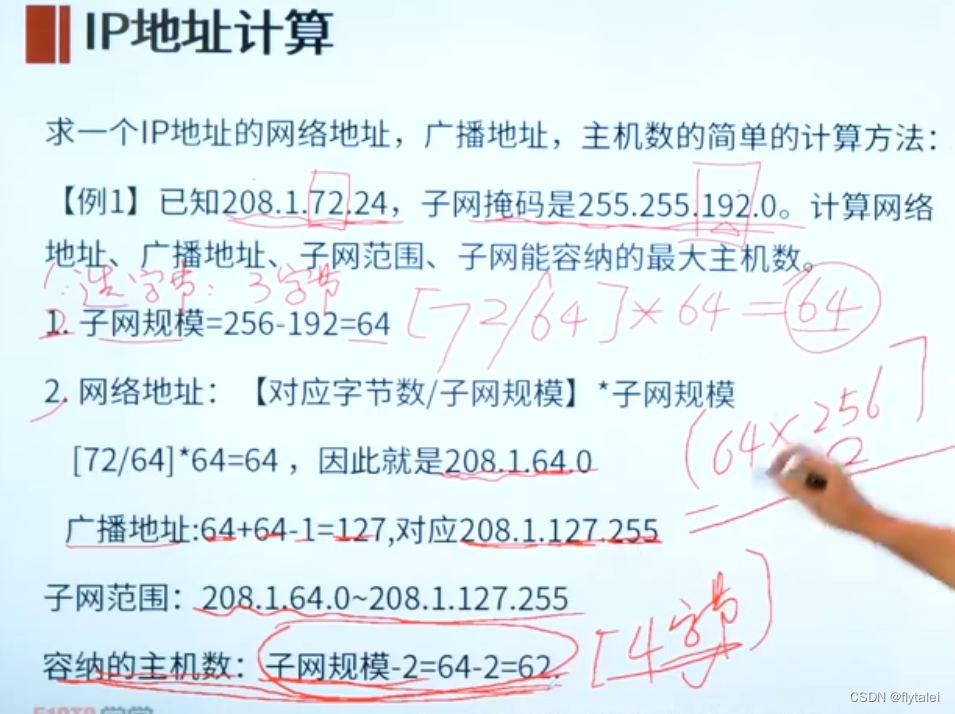 IP地址计算
求一个IP地址的网络地址，广播地址，主机数的简单的计算方法：
【例1】已知208.1.72.24，子网掩码是255.255.192.0。计算网络
地址、广播地址、子网范围、子网能容纳的最大主机数。
1. 选字节：3字节
1. 子网规模=256-192=64 [72/64]×64=64
2. 网络地址：【对应字节数/子网规模】*子网规模
(64×256
2
[72/64]*64=64，因此就是208.1.64.0
广播地址:64+64-1=127,对应208.1.127.255
子网范围：208.1.64.0~208.1.127.255
[4字节]
容纳的主机数：子网规模-2=64-2=62.
CSDN @flytalei